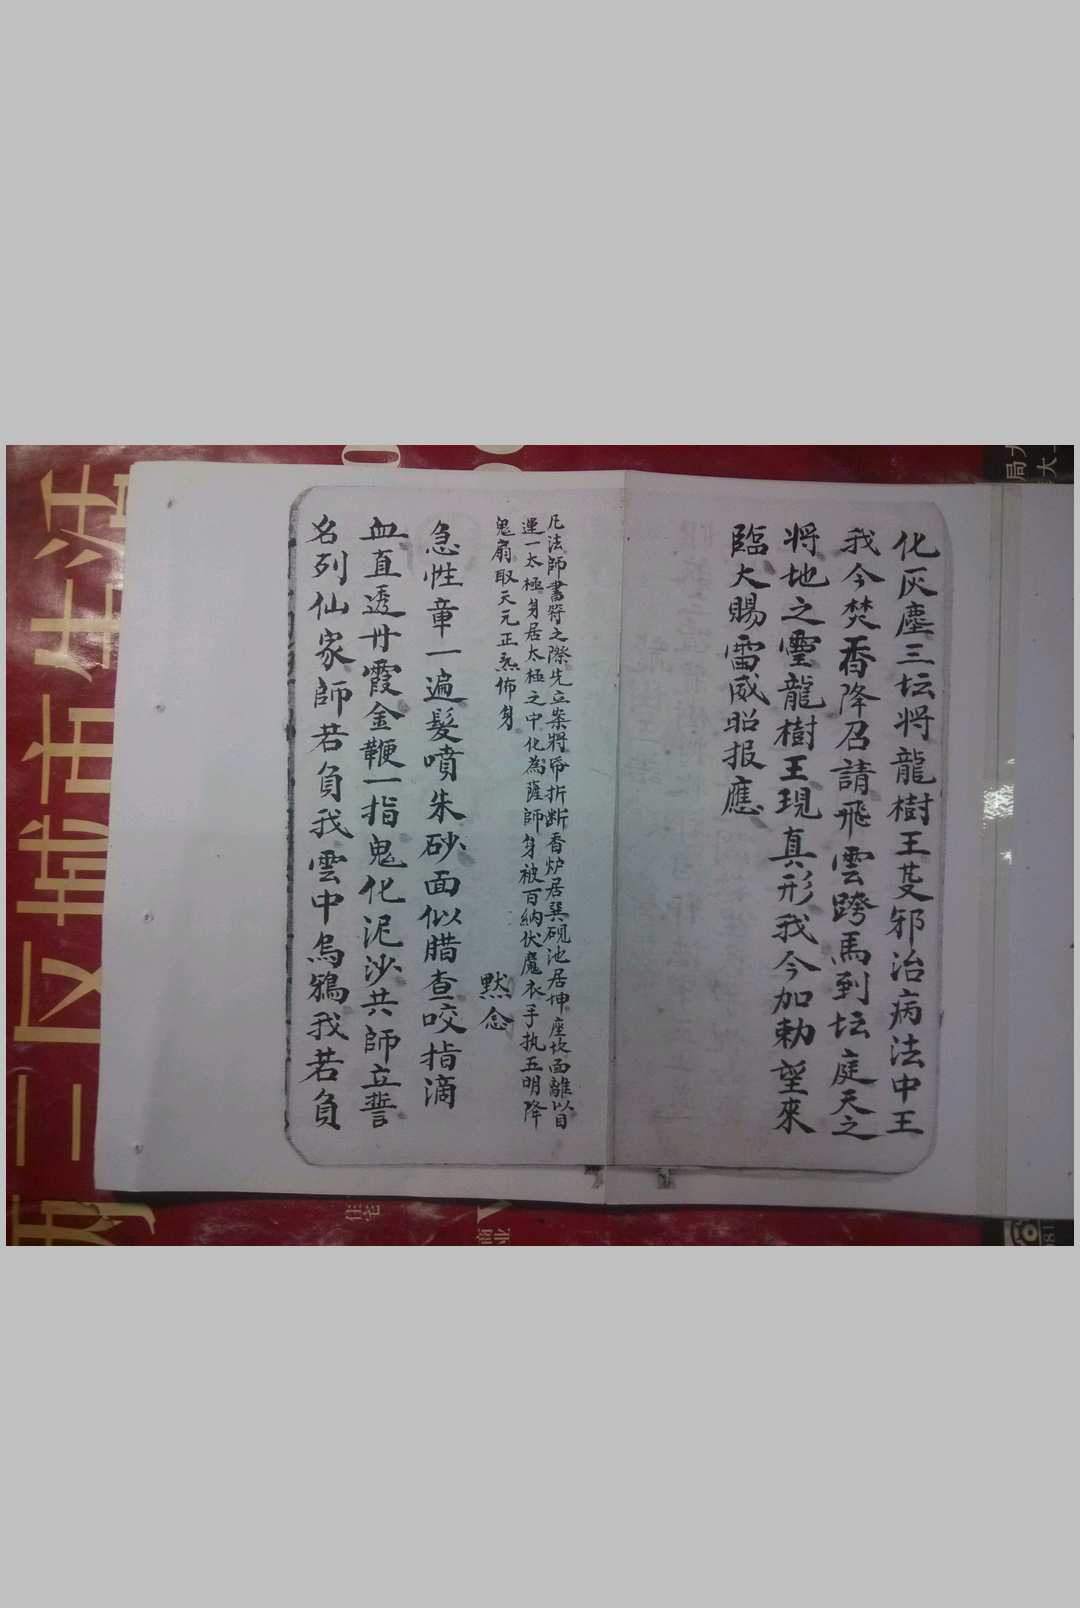 化灰塵三坛将龍樹王芟邪治病法中王
我今焚香降召請飛雲跨馬到坛庭天之
将地之靈龍樹王現真形我今加勅望來
臨大賜雷威昭报應
凡法師書符之際先立案將帋折断香炉居巽硯池居坤座坎面離以目
運一太極身居太極之中化為薩師身被百納伏魔衣手执五明降
鬼扇取天元正炁佈身
默念
急性章一遍髮噴朱砂面似腊查咬指滴
血直透丹霞金鞭一指鬼化泥沙共師立誓
名列仙家師若負我雲中烏鴉我若負
三医城市生活
住宅